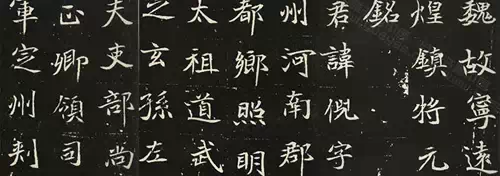 魏故寧遠
煌鎮將元
銘
君諱倪字
州河南郡
都鄉照明
太祖道武
之玄孫左
夫吏部尚
正卿領司
軍定州刺